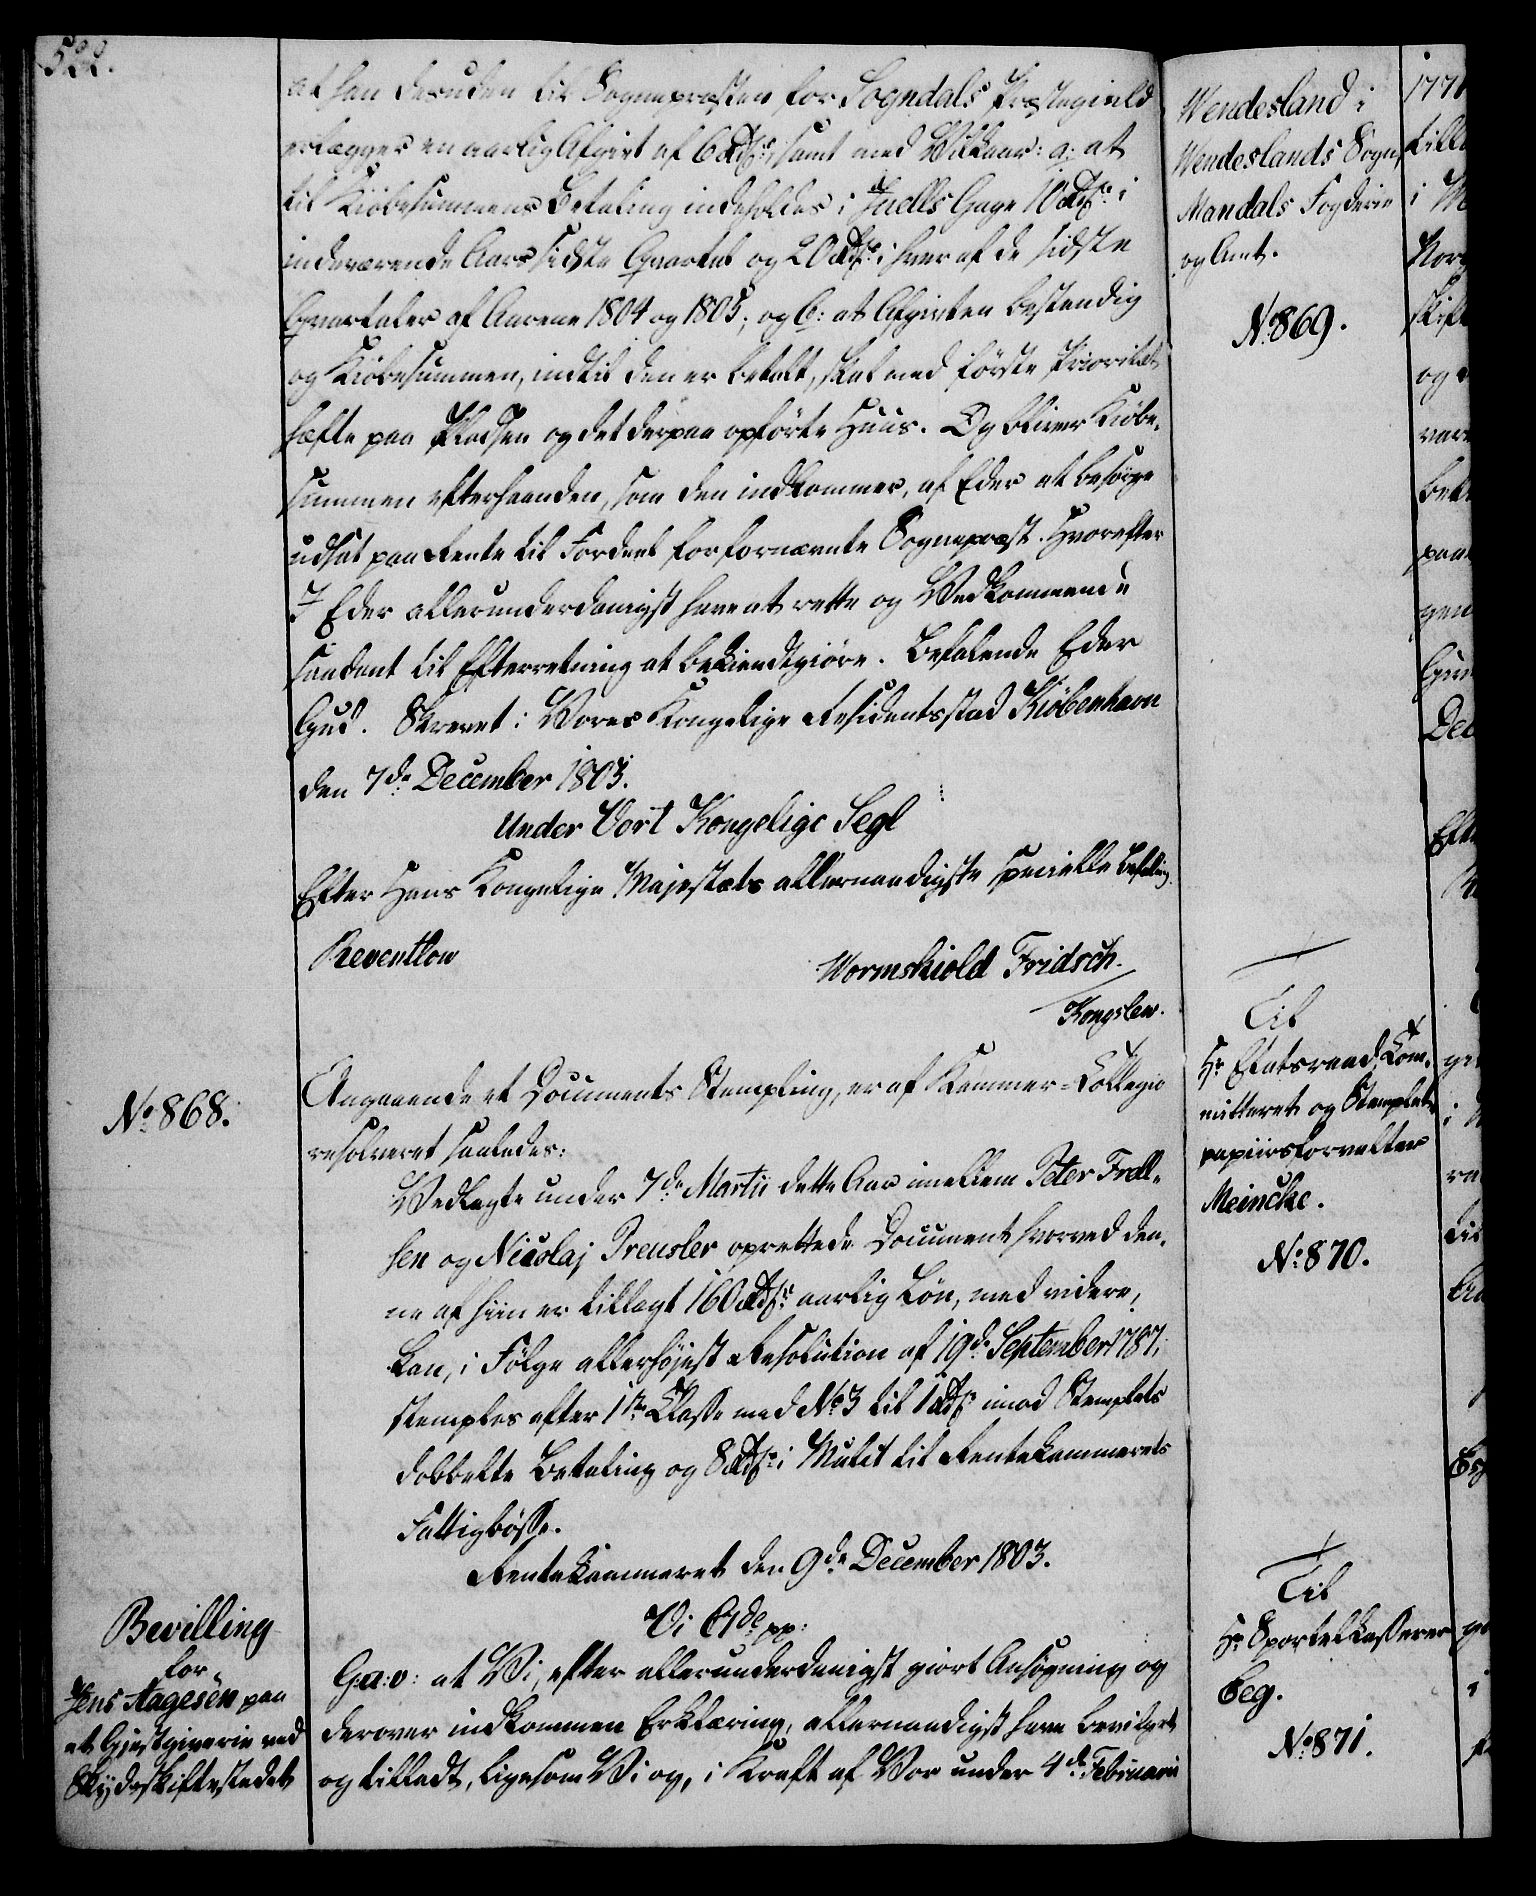 522.
at han desuden til Sognepræsten for Sogndals Præstegield
erlægger en aarlig Afgivt af 6 Rdlr; samt med Vilkaar: a: at
til Kiøbesummens Betaling indeholdes i Juells Gage 10 Rdlr i
indeværende Aars sidste Qvartal og 20 Rdlr i hver af de sidste
Qvartaler af Aarene 1804 og 1805; og b: at Afgivten bestendig
og Kiøbesummen, indtil den er betalt, skal med første Prioritet
hæfte paa Pladsen og det derpaa opførte Huus. Og bliver Kiøbe-
summen efterhaanden, som den indkommer, af Eder at besørge
udsat paa Rente til Fordeel for fornævnte Sognepræst. Hvorefter
I Eder allerunderdanigst have at rette og Vedkommende
saadant til Efterretning at bekiendtgiøre. Befalende Eder
Gud. Skrevet i Vores Kongelige Residentsstad Kiøbenhavn
den 7de December 1803.
Under Vort Kongelige Segl
Efter Hans Kongelige Majestæts allernaadigste specielle Befaling.
Reventlow
Wormskiold Fridsch.
Kongslew.
No. 868.
Angaaende et Documents Stempling, er af Kammer-Collegio
resolveret saaledes:
Vedlagte under 7de Martii dette Aar imellem Peter Frell-
sen og Nicolaj Preusler oprettede Document hvorved den-
ne af hiin er tillagt 160 Rdlr aarlig Løn, med videre,
kan, i Følge allerhøjest Resolution af 19de September 1787,
stemples efter 1ste Classe med No. 3 til 1 Rdlr imod Stemplets
dobbelte Betaling og 8 Rdlr i Mulct til Rentekammerets
Fattigbøsse.
Rentekammeret den 9de December 1803.
Bevilling
for
Jens Aagesen paa
et Giestgiverie ved
Skydsskiftestedet
Vi C 7de pp:
G: a: v: at Vi, efter allerunderdanigst giort Ansøgning og
derover indkommen Erklæring, allernaadigst have bevilget
og tilladt, ligesom Vi og, i Kraft af Vor under 4de Februarii
Wendesland i
Wendeslands Sogn,
Mandals Fogderie
og Amt.
No. 869.
Til
Hr. Etatsraad, Com-
mitteret og Stemplet-
papiirsforvalter
Meincke.
No: 870.
Til
Hr. Sportelkasserer
Beg.
No: 871.